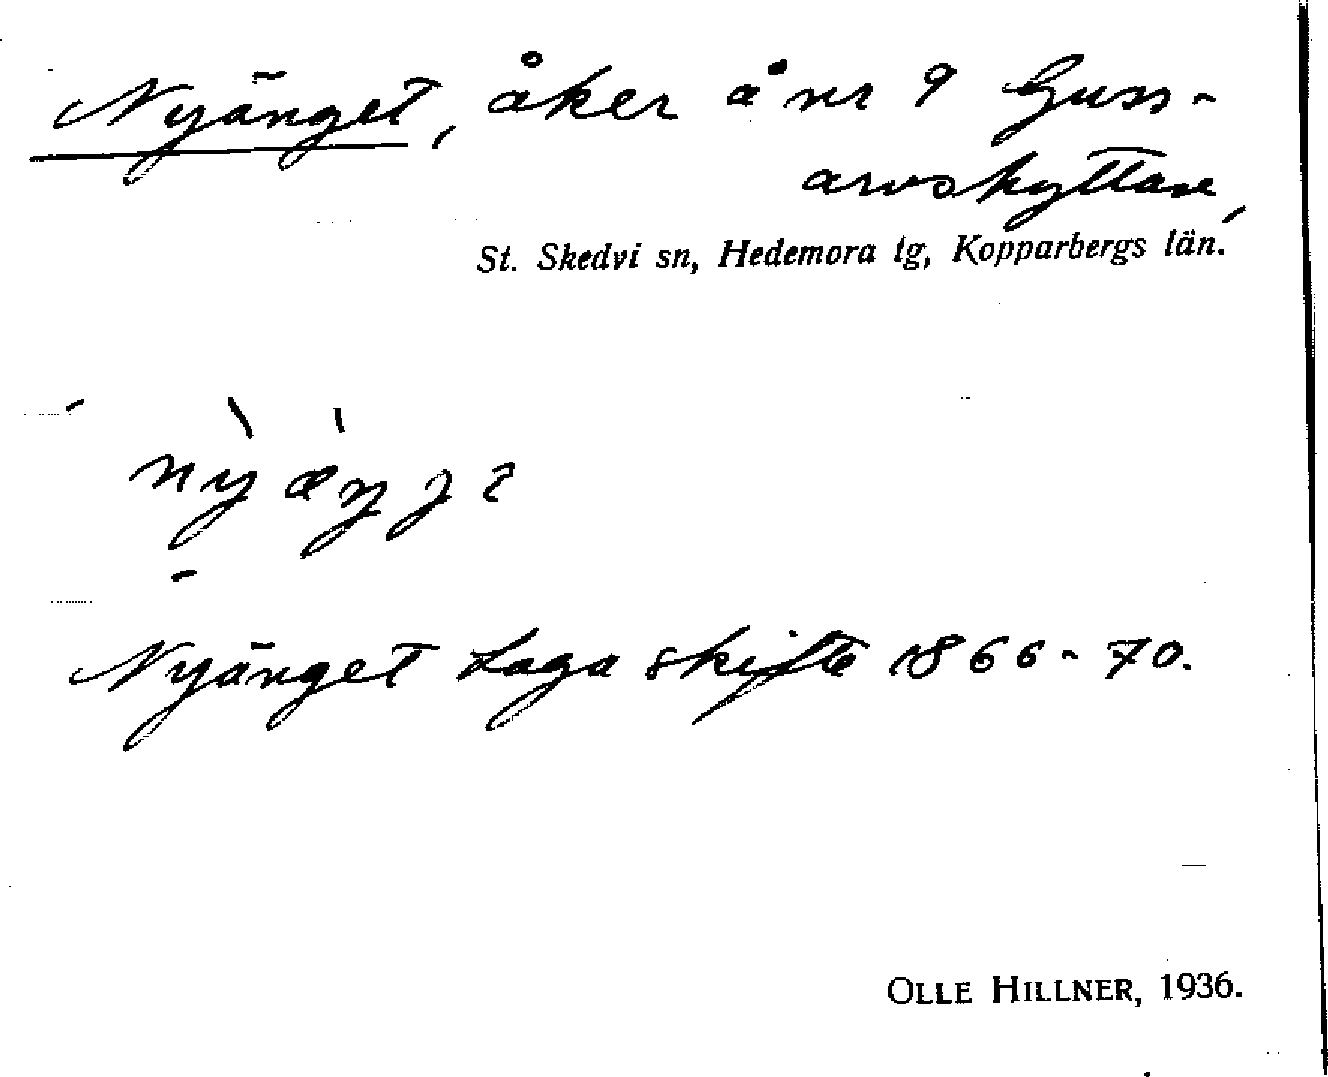 Nyänget, åker å nr 9 Guss-
arvshyttan,
St. Skedvi sn, Hedemora tg, Kopparbergs län.
Nyänget Laga skifte 1866-70.
OLLE HILLNER, 1936.